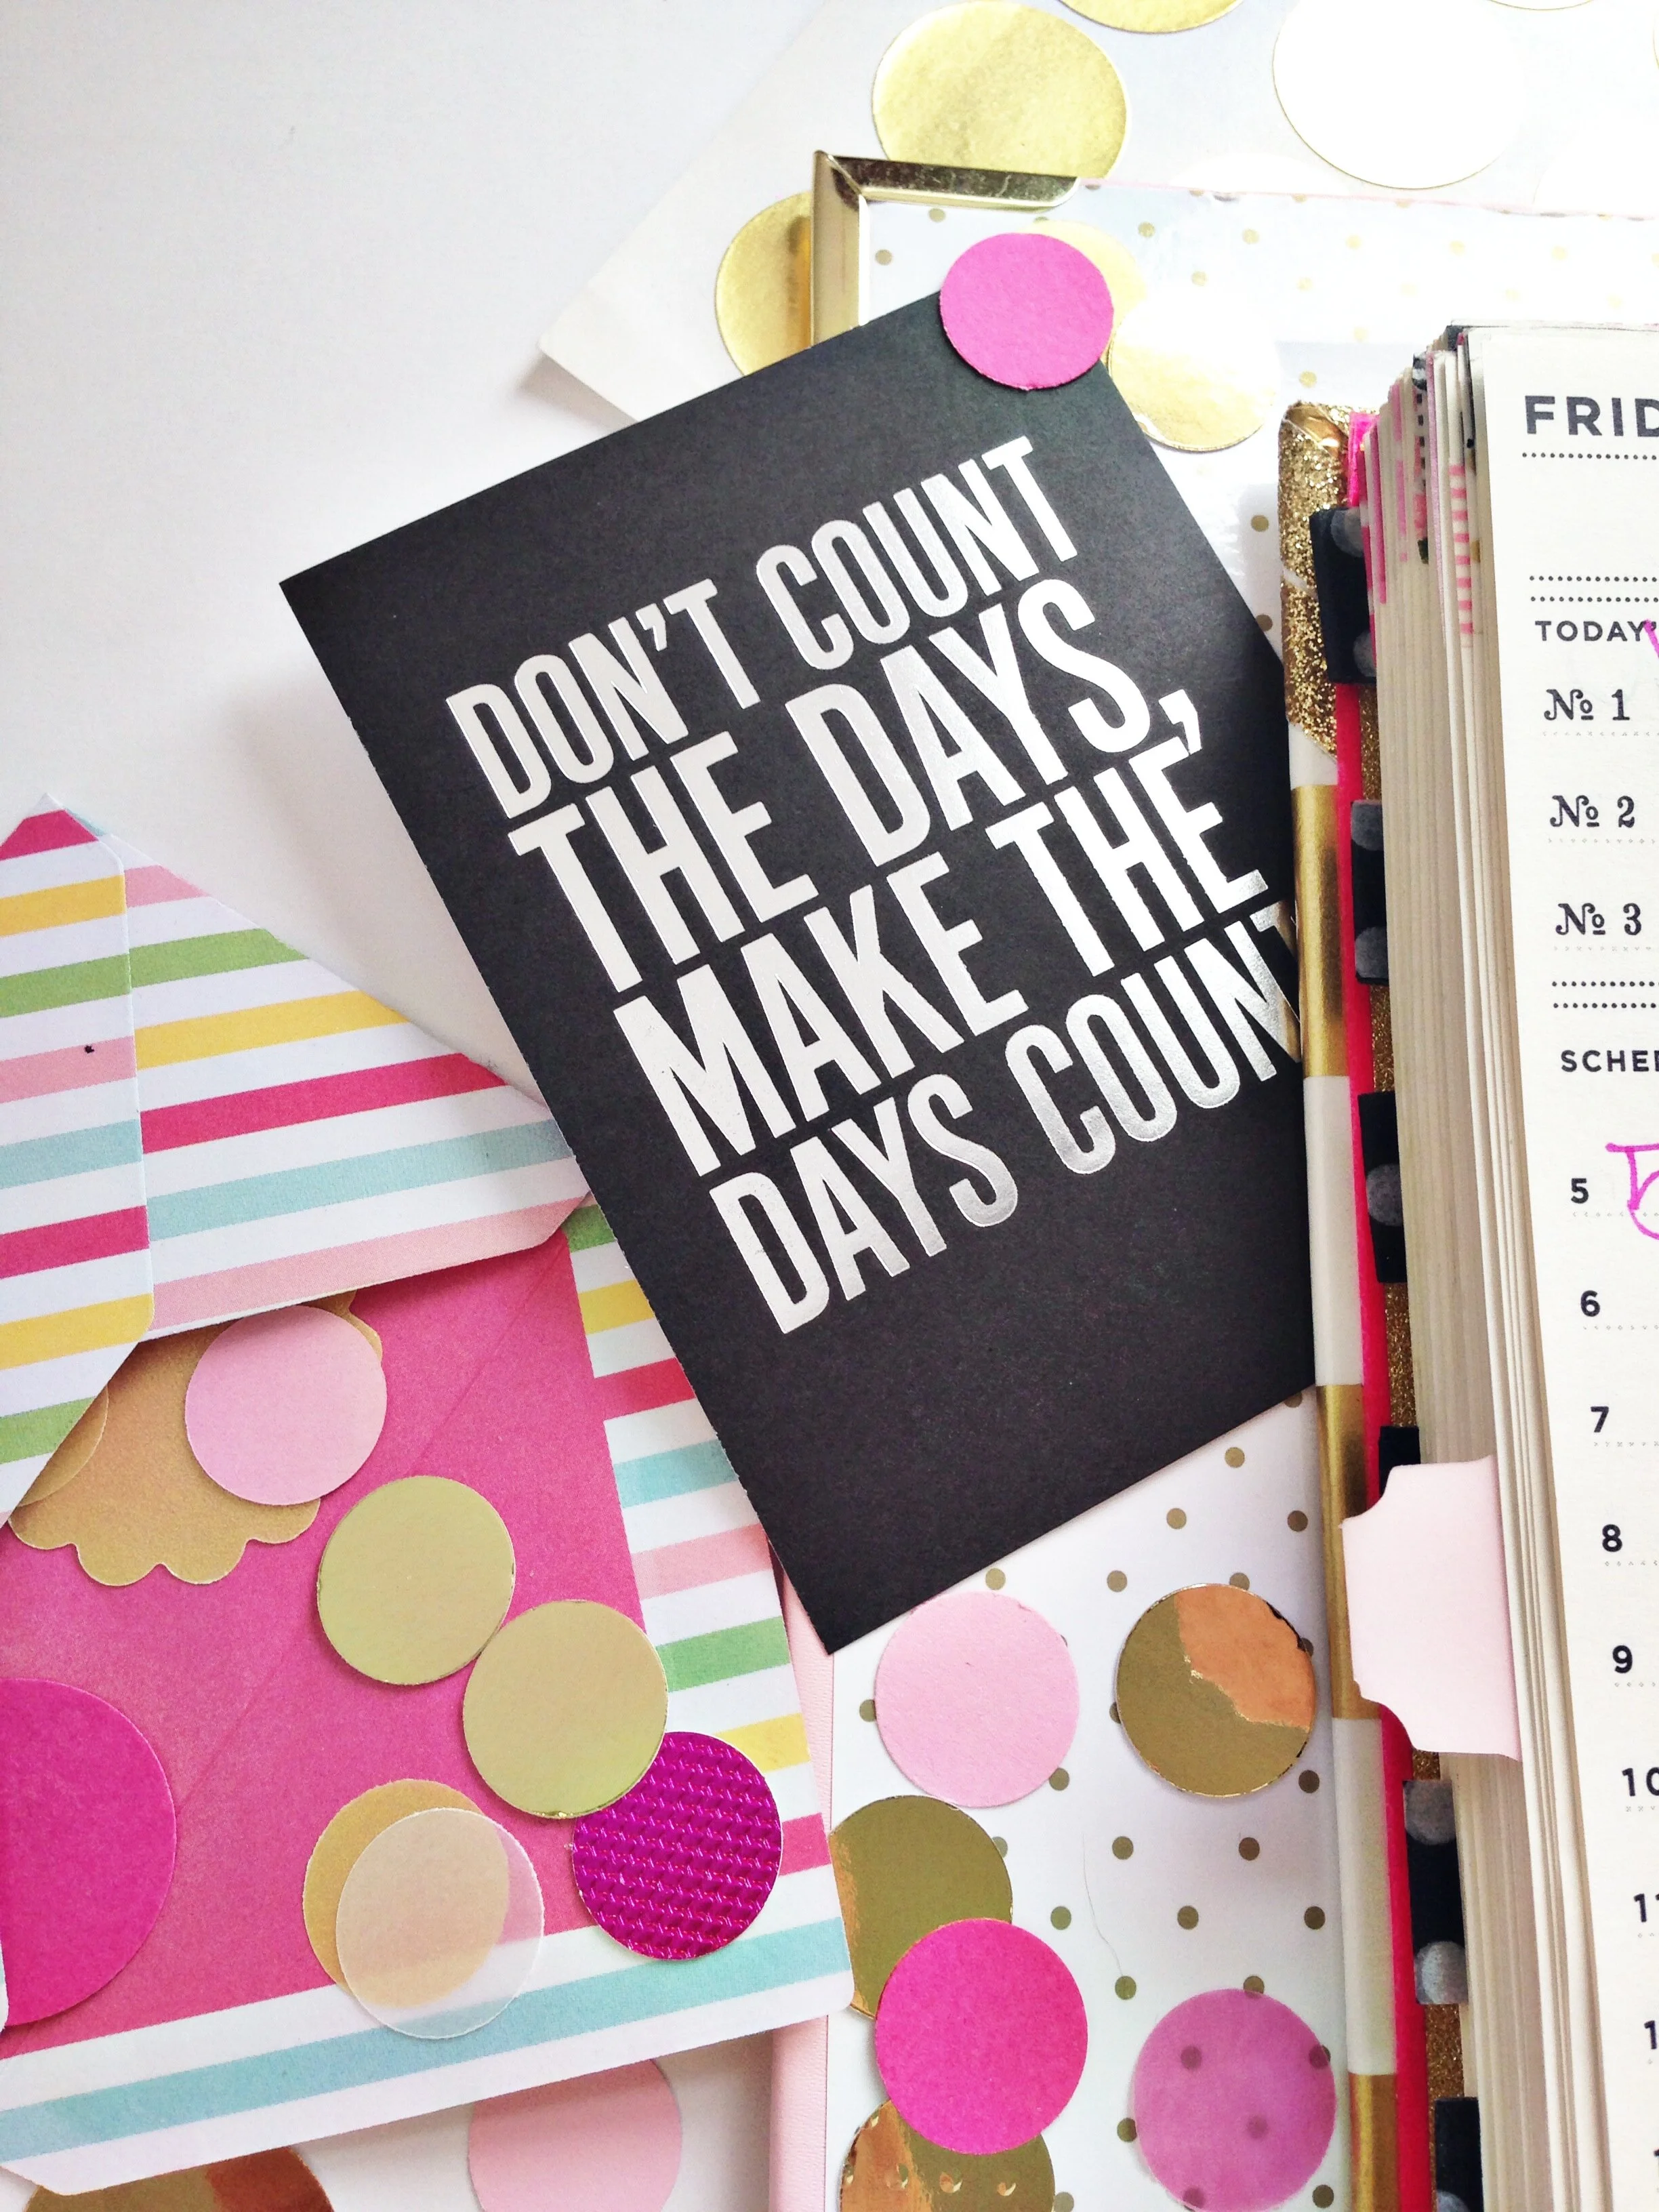 DON'T COUNT
THE DAYS,
MAKE THE
DAYS COUNT
FRID
TODAY'
№ 1
№ 2
№ 3
SCHE
5
6
7
8
9
10